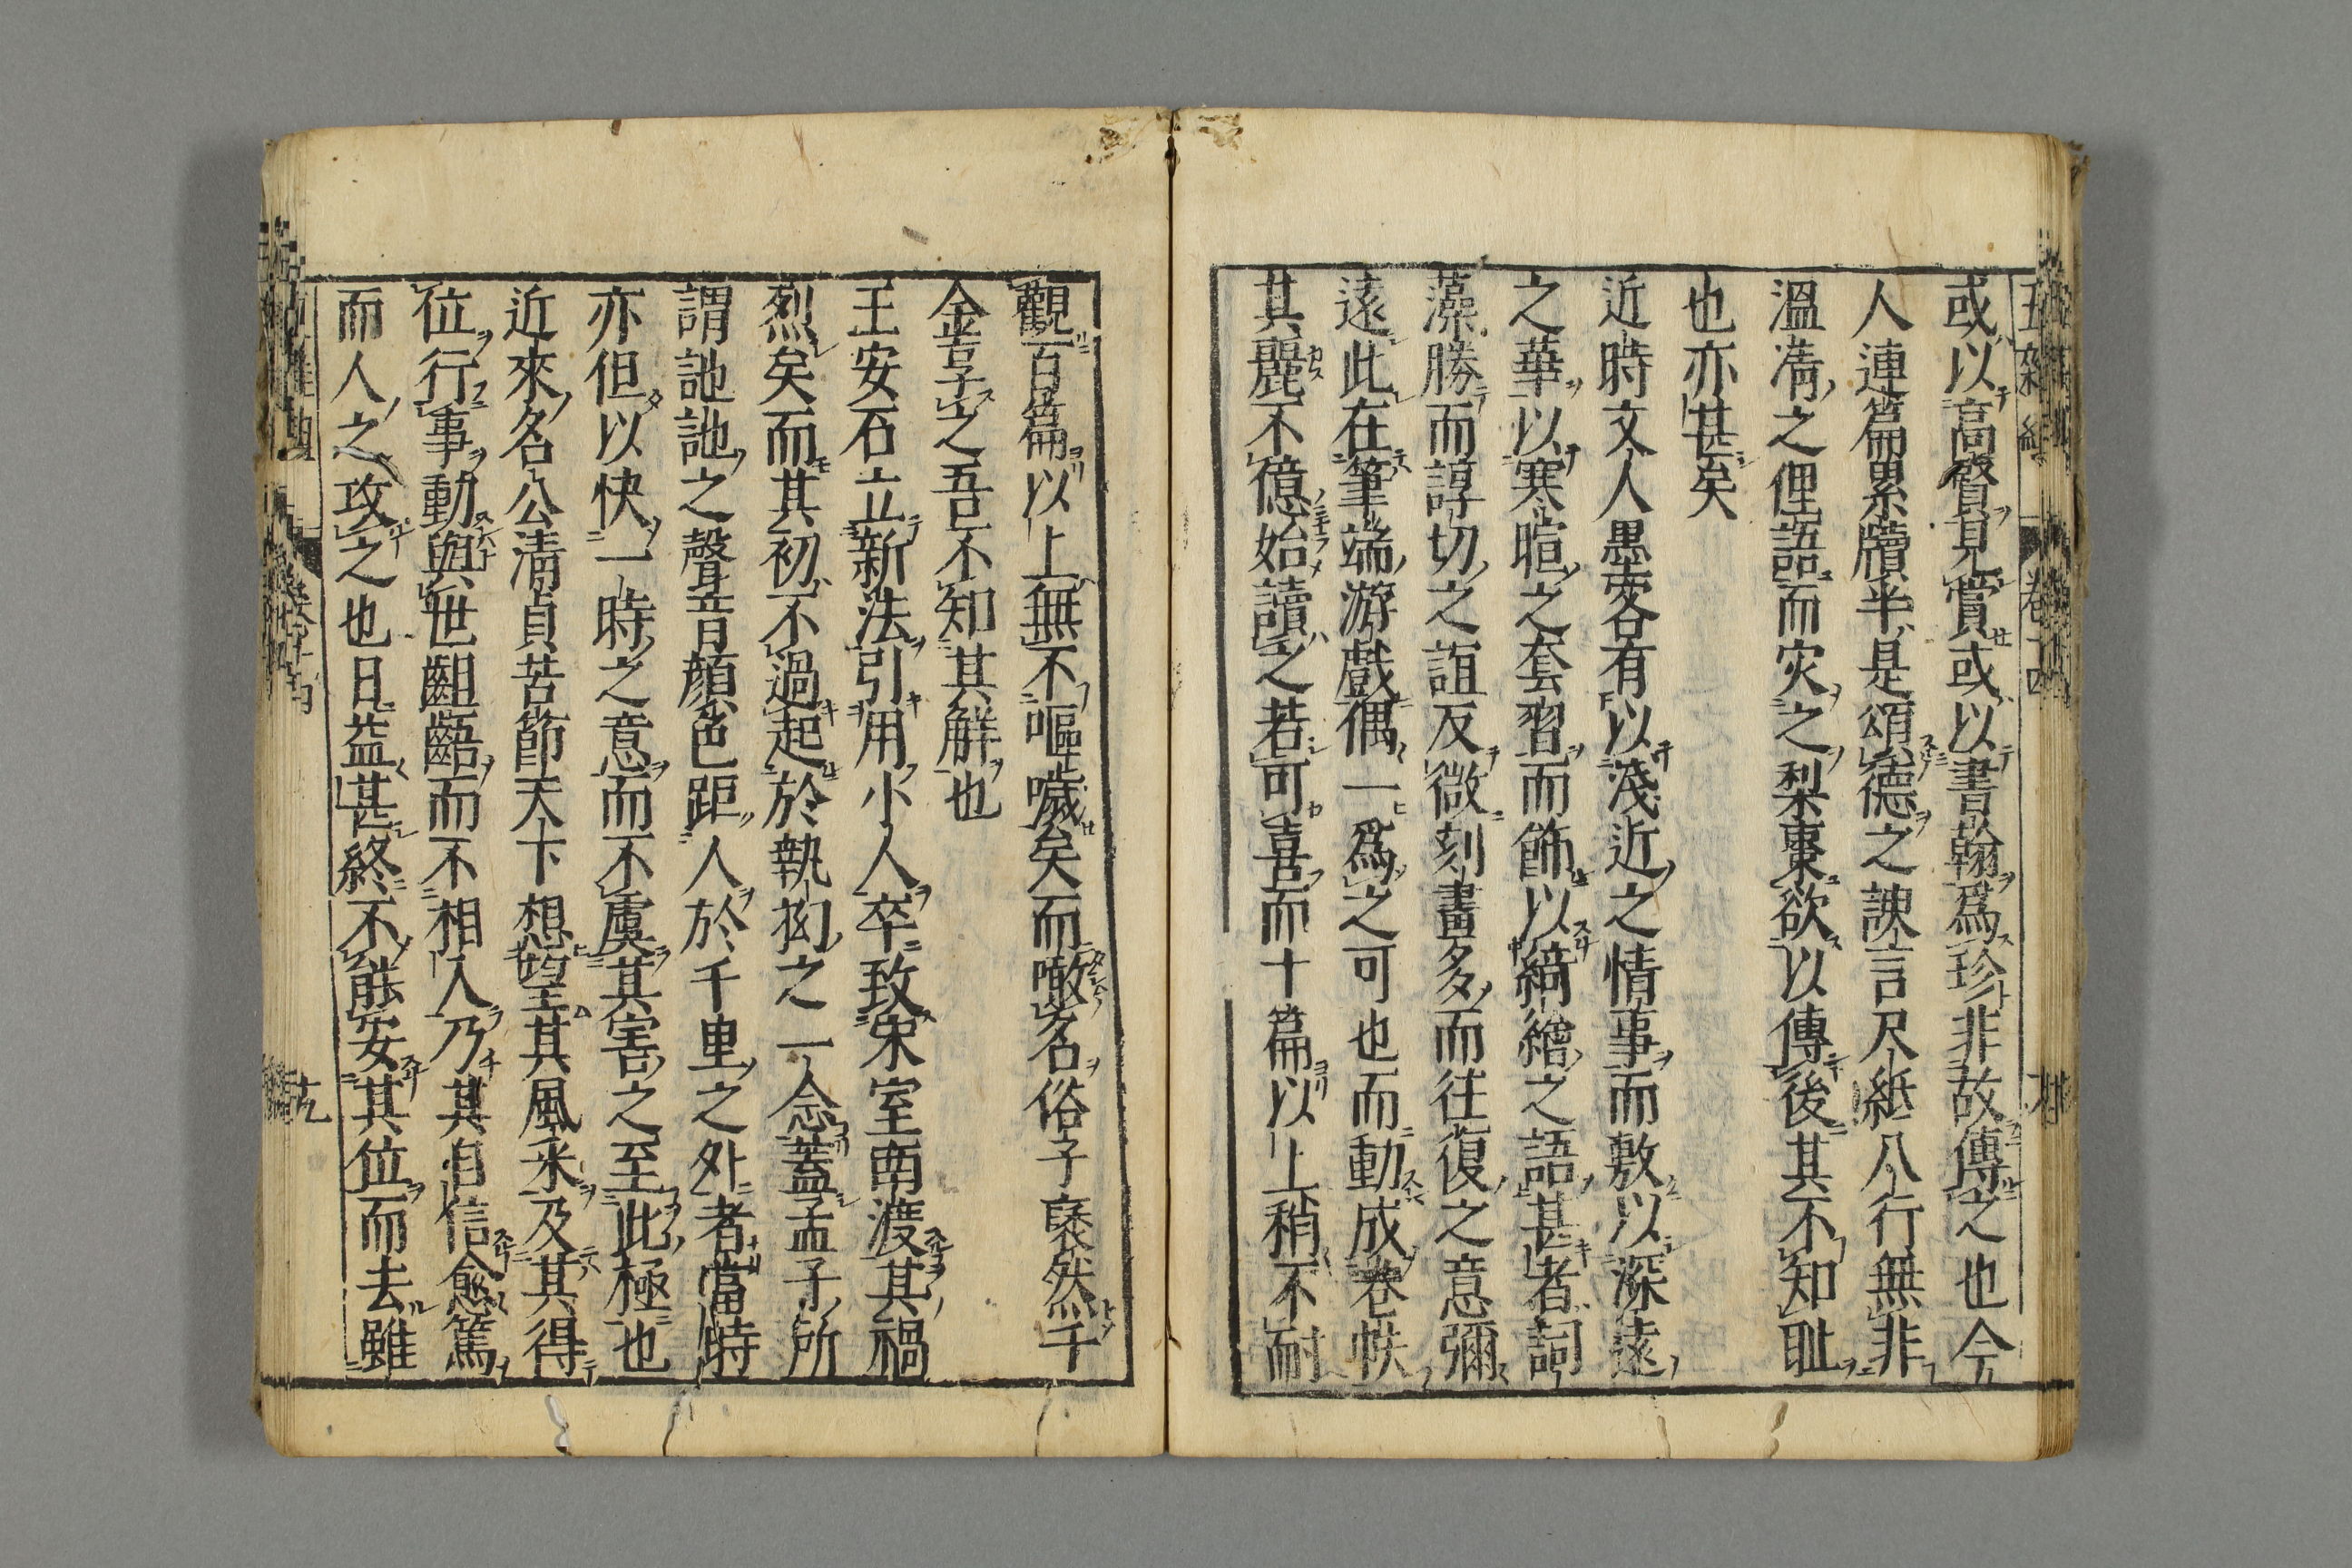 或以高賢見賞或以書翰爲珍非故傳之也今
人連篇累牘半是頌德之諛言尺紙八行無非
溫凊之俚語而灾之梨棗欲以傳後其不知耻
也亦甚矣
近時文人墨客有以淺近之情事而敷以深遠
之華以寒暄之套習而飾以綺繪之語甚者詞
藻勝而諄切之誼反微刻畫多而往復之意彌
遠此在筆端游戲偶一爲之可也而動成卷帙
其麗不億始讀之若可喜而十篇以上稍不耐
觀百篇以上無不嘔噦矣而噉名俗子褎然千
金享之吾不知其解也
王安石立新法引用小人卒致宋室南渡其禍
烈矣而其初不過起於執拗之一念蓋孟子所
謂訑訑之聲音顏色距人於千里之外者當時
亦但以快一時之意而不虞其害之至此極也
近來名公清貞苦節天下想望其風采及其得
位行事動與世齟齬而不相入乃其自信愈篤
而人之攻之也日益甚終不能安其位而去雖